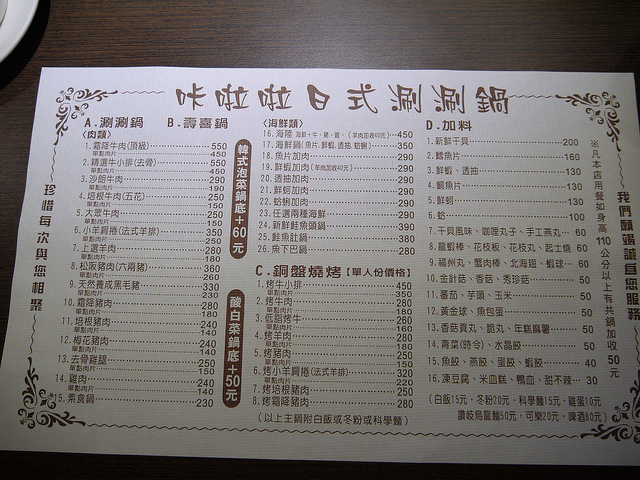 咔啦啦日式涮涮鍋
A.涮涮鍋 B.壽喜鍋
〈肉類〉
1.霜降牛肉(頂級) 550
單點肉片 450
2.精選牛小排(去骨) 550
單點肉片 450
3.沙朗牛肉 290
單點肉片 190
4.培根牛肉(五花) 250
單點肉片 150
5.大眾牛肉 250
單點肉片 150
6.小羊肩捲(法式羊排) 350
單點肉片 250
7.上選羊肉 280
單點肉片 180
8.松阪豬肉(六兩豬) 360
單點肉片 260
9.天然養成黑毛豬 330
單點肉片 230
10.霜降豬肉 280
單點肉片 180
11.培根豬肉 240
單點肉片 140
12.梅花豬肉 240
單點肉片 140
13.去骨雞腿 250
單點肉片 150
14.雞肉 240
單點肉片 140
15.素食鍋 230
韓式泡菜鍋底+60元
酸白菜鍋底+50元
〈海鮮類〉
16.海陸 450
17.海鮮鍋(魚片.鮮蝦.透抽.蛤蜊) 350
18.魚片加肉 290
19.鮮蝦加肉(羊肉加收40元) 290
20.透抽加肉 290
21.鮮蚵加肉 290
22.蛤蜊加肉 290
23.任選兩種海鮮 290
24.新鮮鮭魚頭鍋 390
25.鮭魚肚鍋 380
26.魚下巴鍋 280
C.銅盤燒烤【單人份價格】
1.烤牛小排 450
單點肉片 350
2.烤牛肉 280
單點肉片 180
3.低脂烤牛 260
單點肉片 160
4.烤羊肉 280
單點肉片 180
5.烤豬肉 250
單點肉片 150
6.烤小羊肩捲(法式羊排) 320
單點肉片 220
7.烤培根豬肉 250
8.烤霜降豬肉 280
(以上主鍋附白飯或冬粉或科學麵)
D.加料
1.新鮮干貝 200
2.鱈魚片 160
3.鮮蝦、透抽 130
4.鯛魚片 130
5.鮮蚵 130
6.蛤 100
7.干貝風味、咖哩丸子、手工燕丸 60
8.龍蝦棒、花枝板、花枝丸、起士燒 60
9.福州丸、蟹肉棒、北海翅、蝦球 60
10.金針菇、香菇、秀珍菇 50
11.蕃茄、芋頭、玉米 50
12.黃金球、魚包蛋 50
13.香菇貢丸、脆丸、年糕麻薯 50
14.青菜(時令)、水晶餃 50
15.魚餃、燕餃、蛋餃、蝦餃 40
16.凍豆腐、米血糕、鴨血、甜不辣 30
(白飯15元，冬粉20元，科學麵15元，雞蛋10元
讚岐烏龍麵50元，可樂20元，啤酒80元)
※凡本店用餐如身高110公分以上有共鍋加收50元
珍惜每次與您相聚
我們願竭誠直您服務